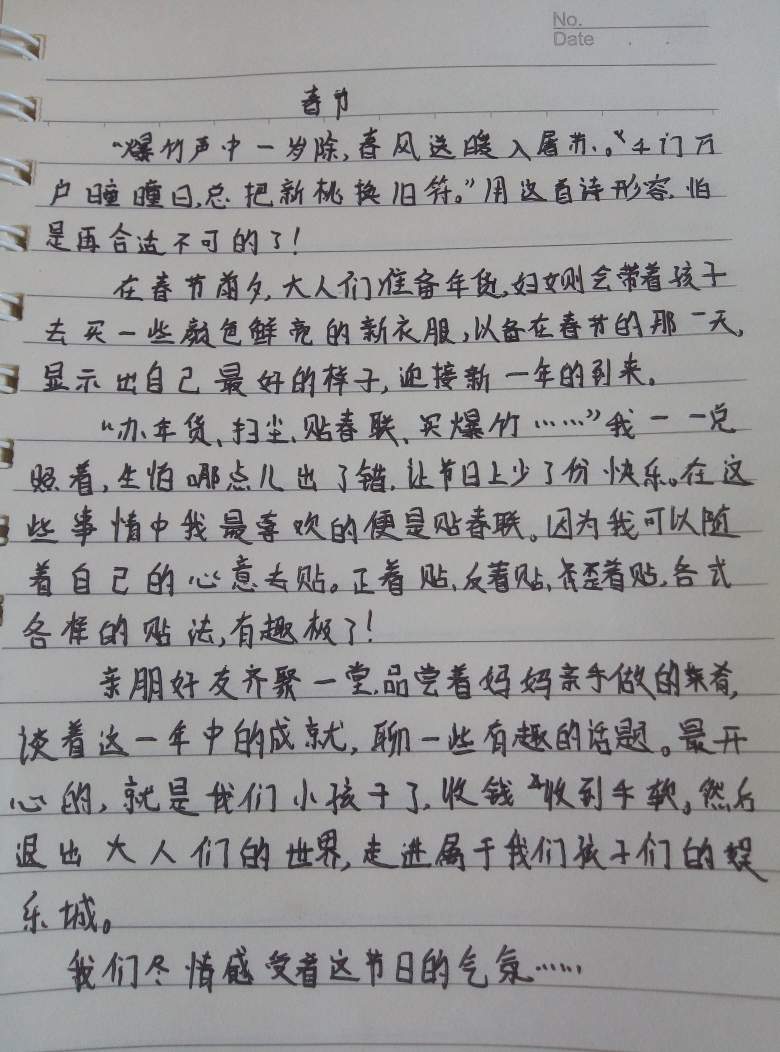 No.
Date
春节
“爆竹声中一岁除,春风送暖入屠苏。”千门万
户曈曈日,总把新桃换旧符。”用这首诗形容,怕
是再合适不可的了!
在春节前夕,大人们准备年货,妇女则会带着孩子
去买一些颜色鲜亮的新衣服,以备在春节的那一天,
显示出自己最好的样子,迎接新一年的到来。
“办年货、扫尘、贴春联、买爆竹……”我一一兑
照着,生怕哪点儿出了错,让节日上少了份快乐。在这
些事情中我最喜欢的便是贴春联。因为我可以随
着自己的心意去贴。正着贴、反着贴、歪着贴,各式
各样的贴法,有趣极了!
亲朋好友齐聚一堂,品尝着妈妈亲手做的菜肴,
谈着这一年中的成就,聊一些有趣的话题。最开
心的,就是我们小孩子了,收钱收到手软,然后
退出大人们的世界,走进属于我们孩子们的娱
乐城。
我们尽情感受着这节日的气氛……